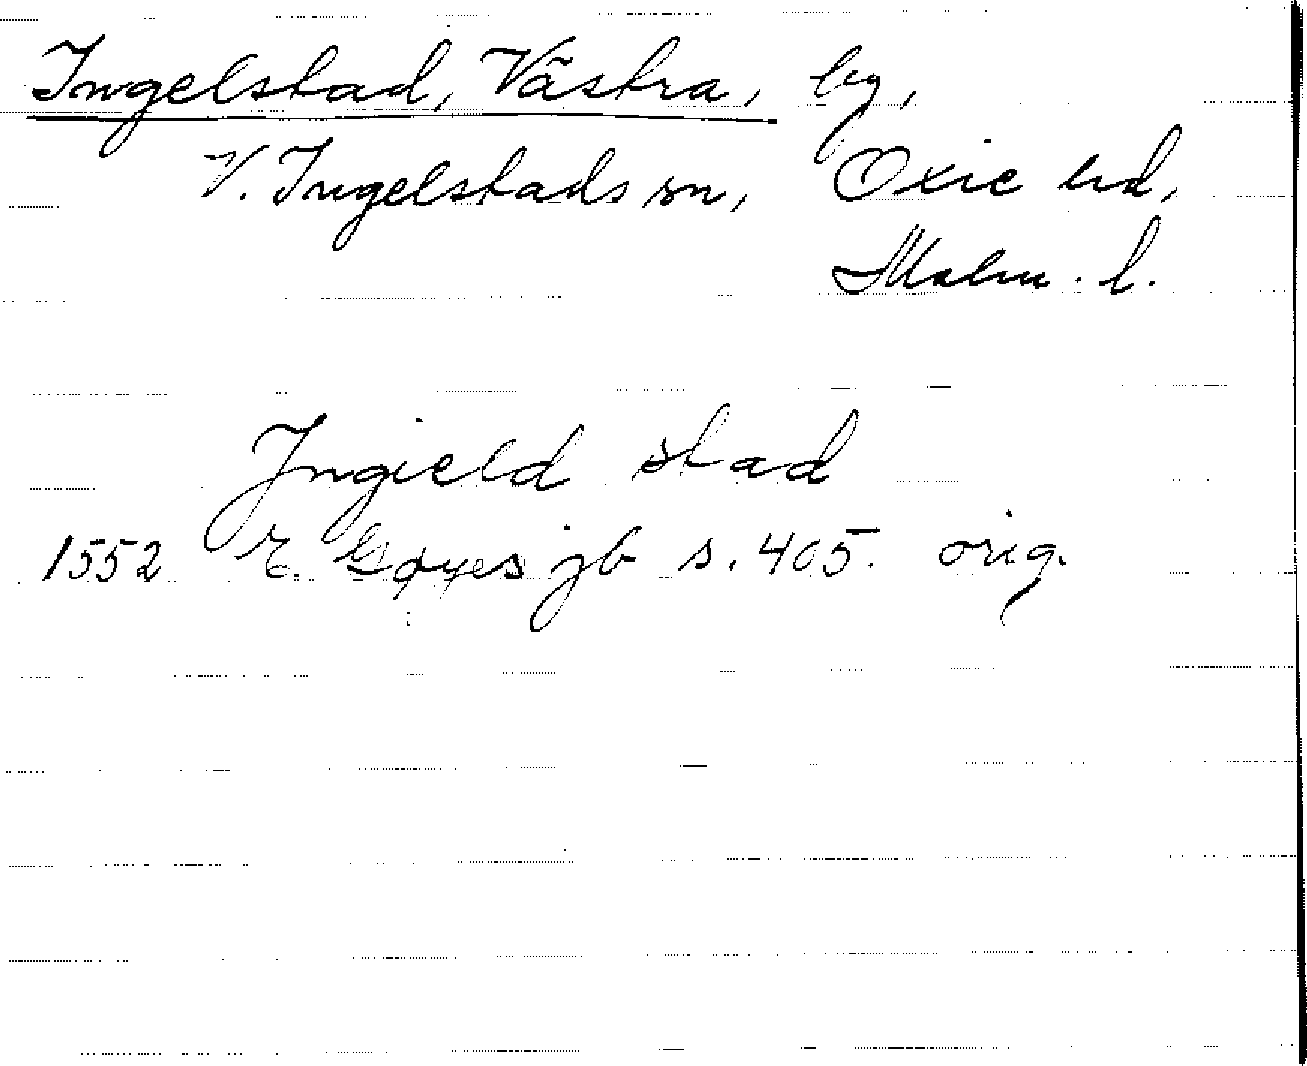 Ingelstad, Västra, by,
V. Ingelstads sn, Oxie hd,
Malm. l.
Ingield stad
1552 E. Gøyes jb s. 405. orig.